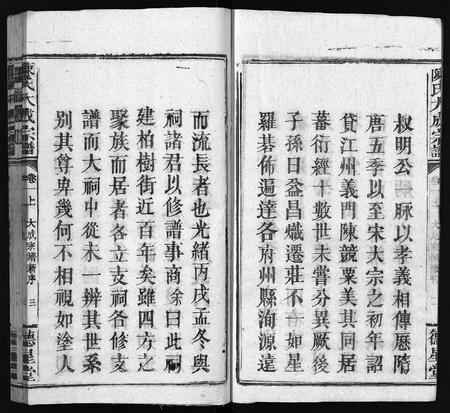 叔明公一脈以孝義相傳歷隋
唐五季以至宋大宗之初年詔
貸江州義門陳競粟美其同居
蕃衍經十數世未嘗分異厥後
子孫日益昌熾遷莊不一如星
羅碁佈遍達各府州縣洵源遠
陳氏大成宗譜
德星堂
而流長者也光緒丙戌孟冬與
祠諸君以修譜事商余曰此祠
建柏樹街近百年矣雖四方之
聚族而居者各立支祠各修支
譜而大祠中從未一辦其世系
別其尊卑幾何不相視如塗人
陳氏大成宗譜
卷上
大成宗譜新序
三
德星堂